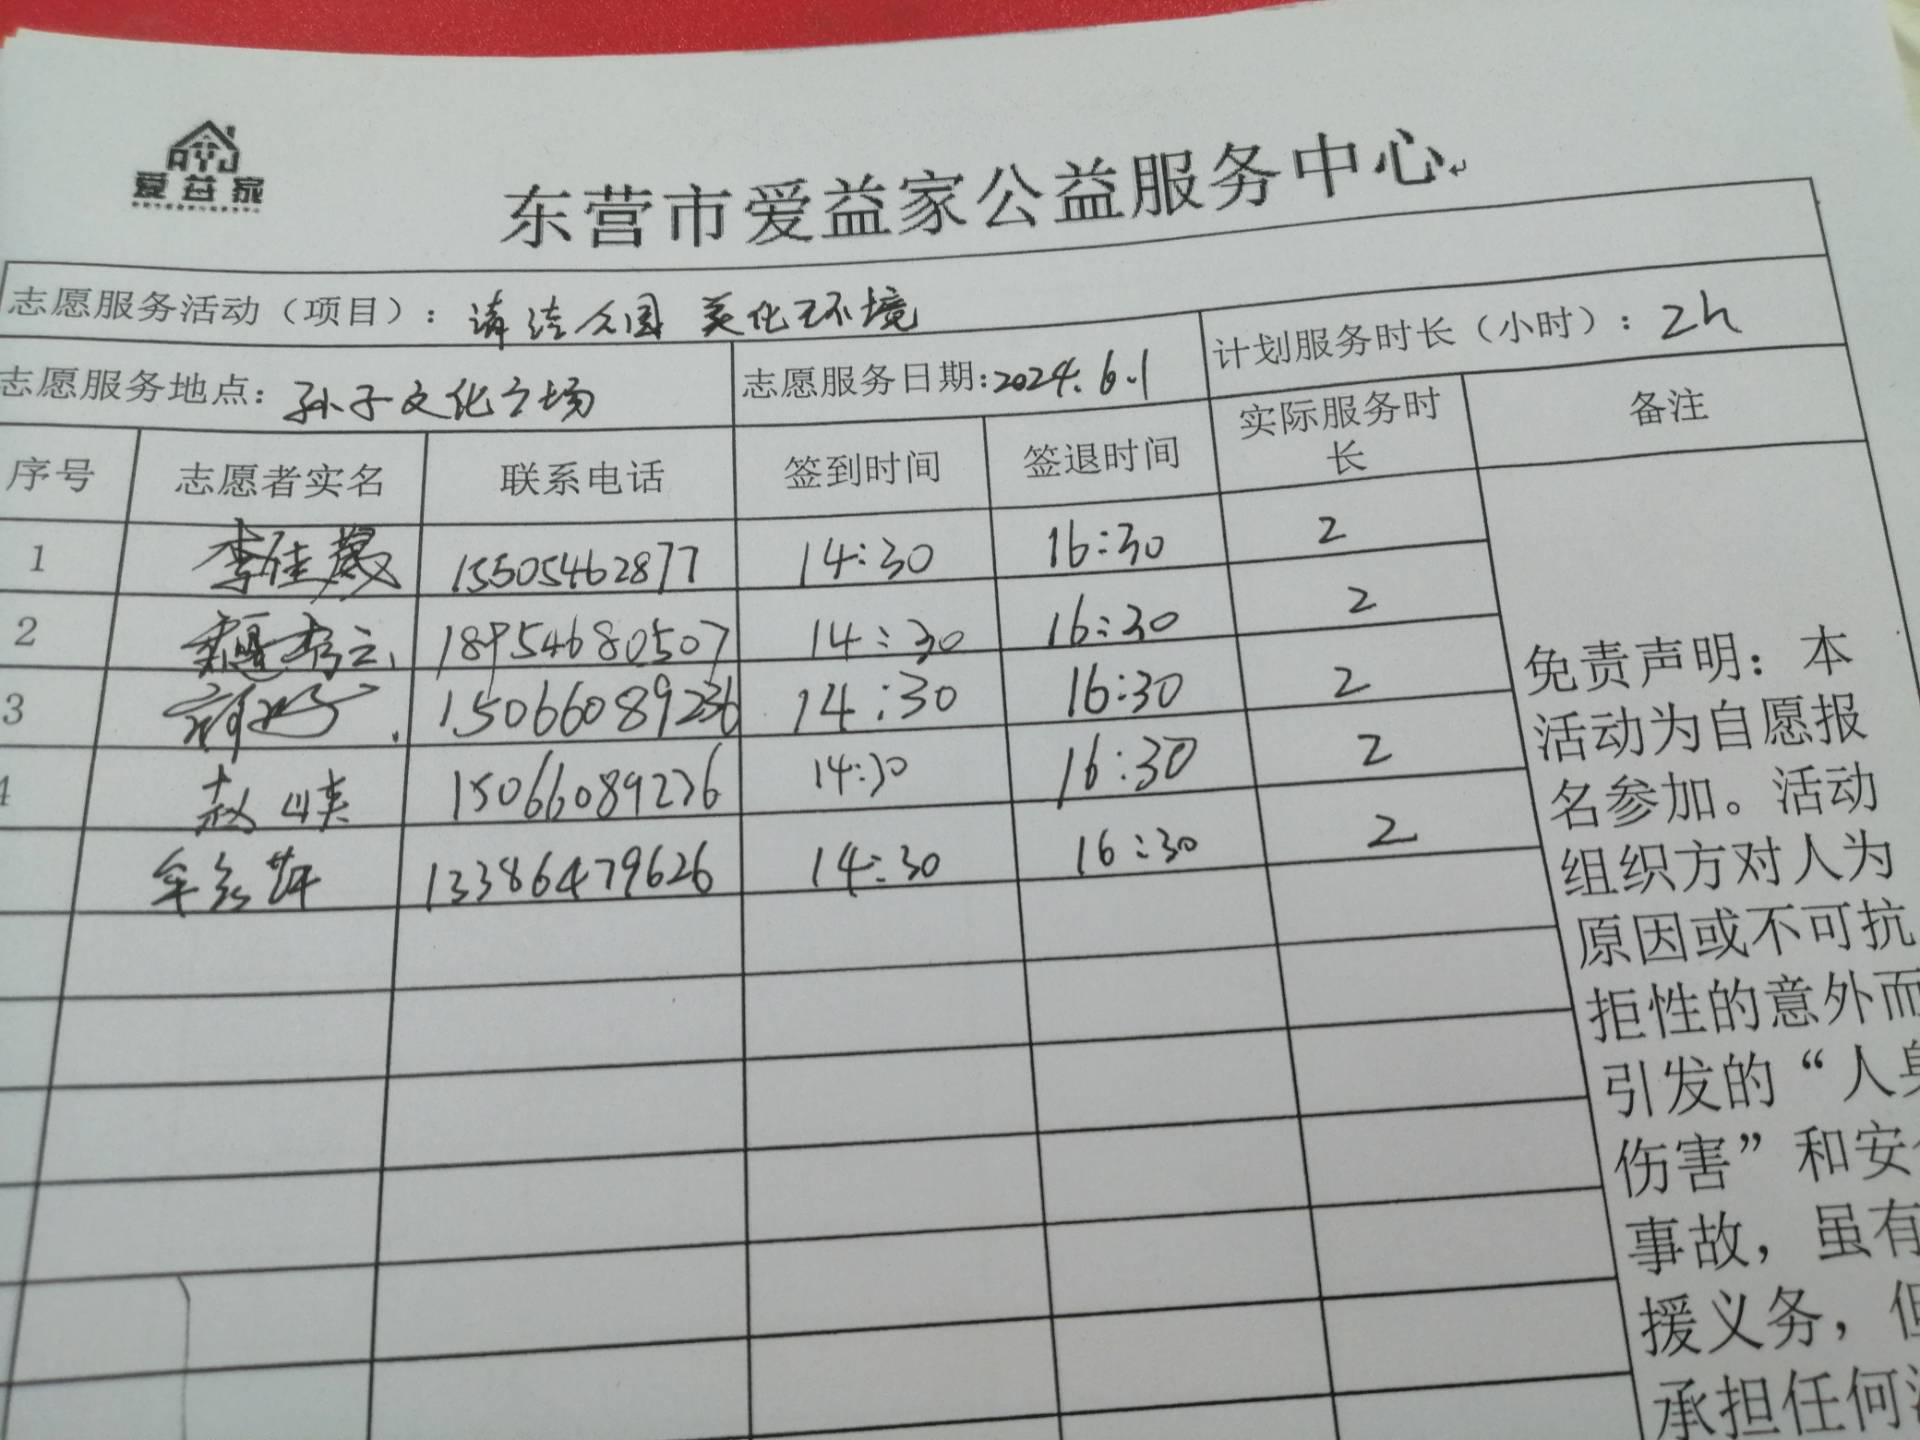 爱益家
东营市爱益家公益服务中心
志愿服务活动（项目）：清洁公园 美化环境
志愿服务地点：孙子文化广场 志愿服务日期：2024.6.1 计划服务时长（小时）：2h
序号 志愿者实名 联系电话 签到时间 签退时间 实际服务时长 备注
1 15505462877 14:30 16:30 2
2 18954680507 14:30 16:30 2
3 15066089236 14:30 16:30 2
4 赵峡 15066089236 14:30 16:30 2
13386479626 14:30 16:30 2
免责声明：本
活动为自愿报
名参加。活动
组织方对人为
原因或不可抗
拒性的意外而
引发的“人身
伤害”和安全
事故，虽有
援义务，但
承担任何